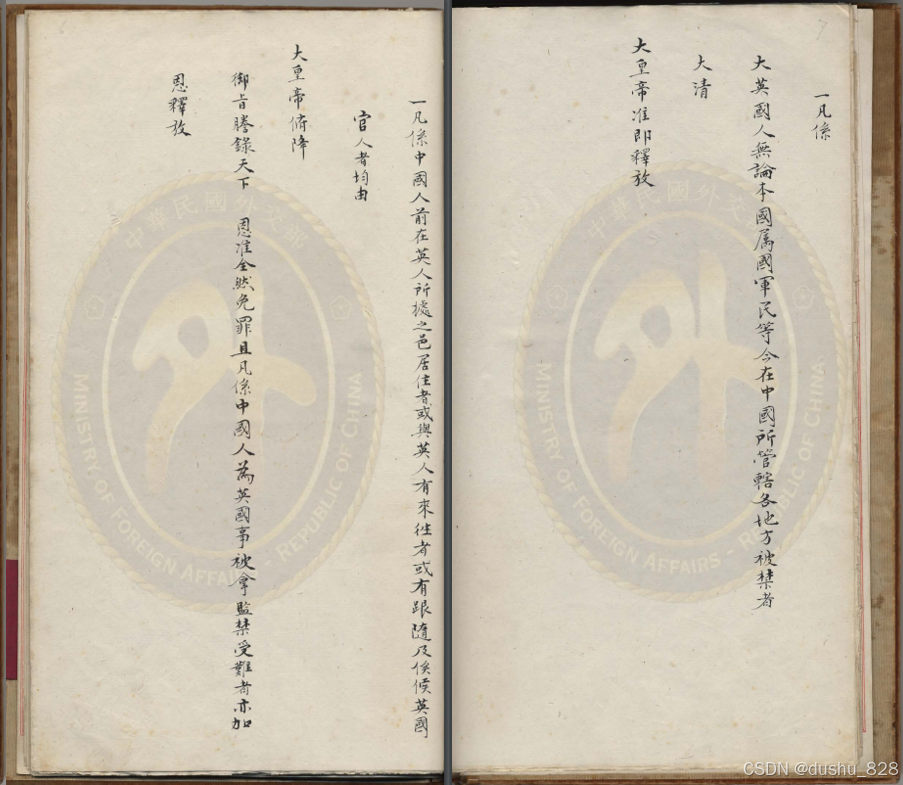 一凡係
大英國人無論本國属國軍民等今在中國所管轄各地方被禁者
大清
大皇帝准即釋放
一凡係中國人前在英人所據之邑居住者或與英人有來往者或有跟隨及俟候英國
官人者均由
大皇帝俯降
御旨謄錄天下 恩准全然免罪且凡係中國人為英國事被拿監禁受難者亦加
恩釋放
中華民國外交部
MINISTRY OF FOREIGN AFFAIRS - REPUBLIC OF CHINA
中華民國外交部
MINISTRY OF FOREIGN AFFAIRS - REPUBLIC OF CHINA
CSDN @dushu_828